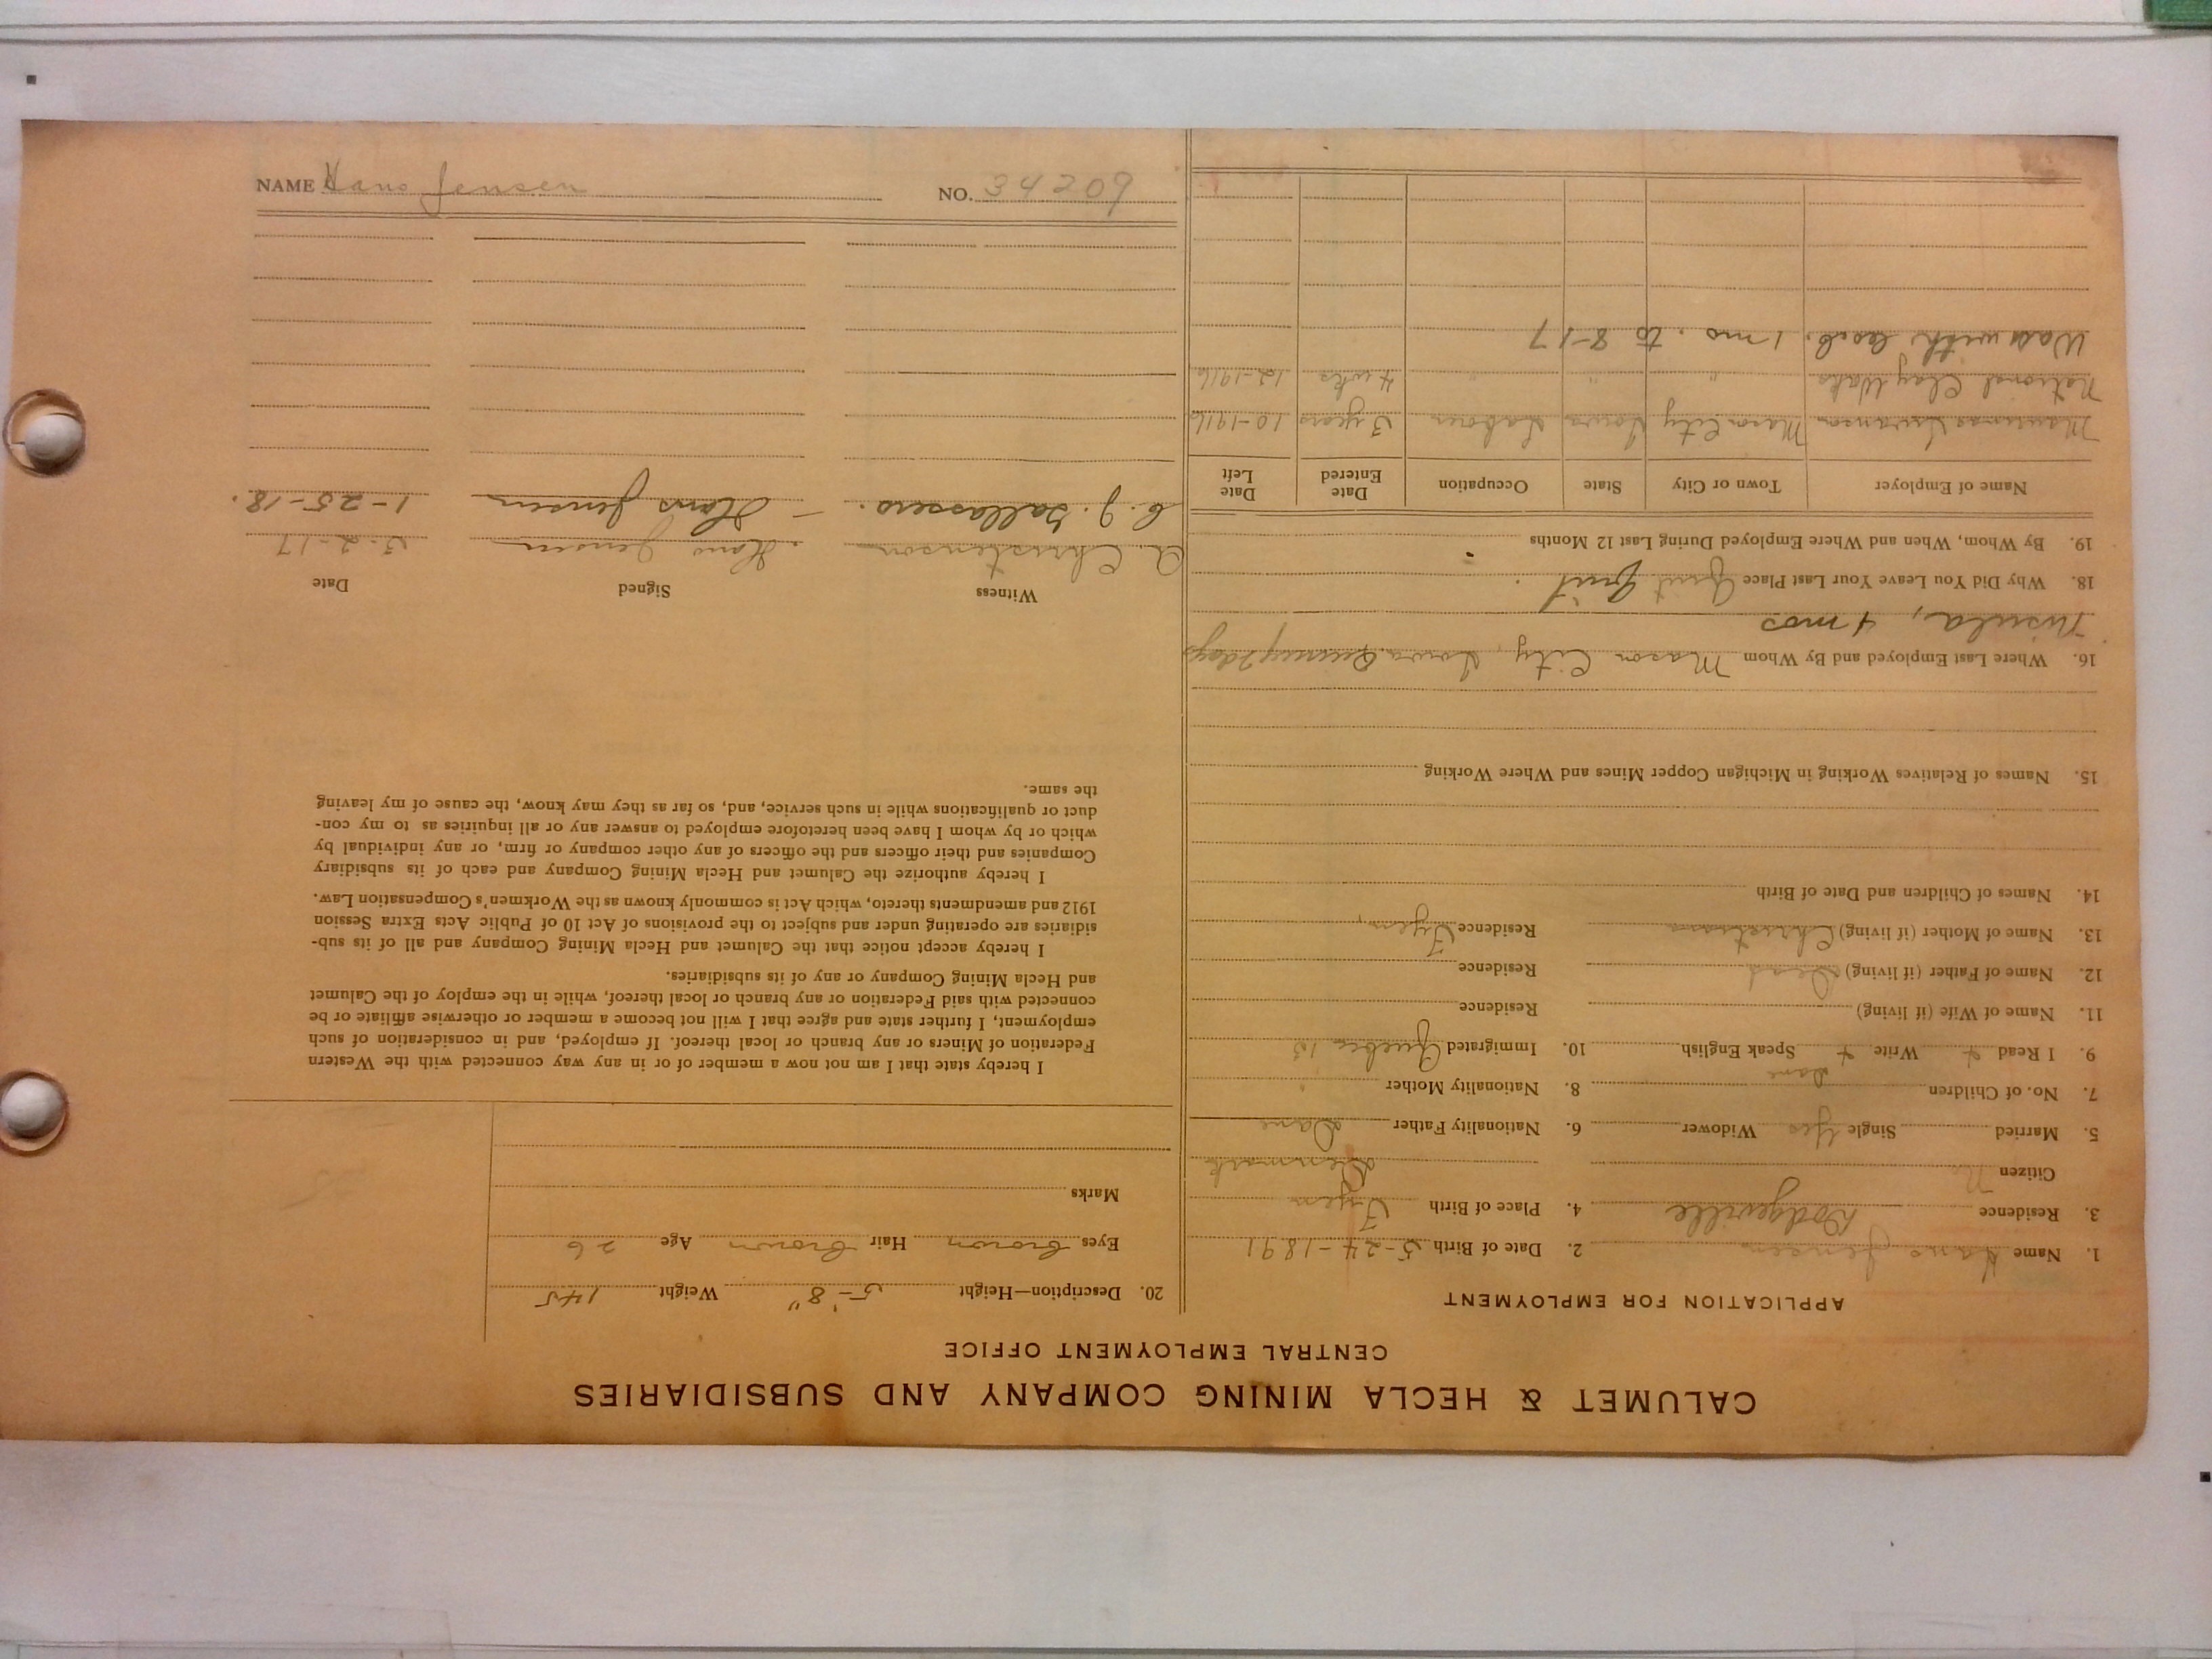 CALUMET & HECLA MINING COMPANY AND SUBSIDIARIES
CENTRAL EMPLOYMENT OFFICE
APPLICATION FOR EMPLOYMENT
1. Name Hans Jensen 2. Date of Birth 5-24-1891
3. Residence Dodgeville 4. Place of Birth Fyen
Citizen No Denmark
5. Married Single Yes Widower 6. Nationality Father Dane
7. No. of Children 8. Nationality Mother Dane
9. I Read + Write + Speak English 10. Immigrated Quebec 13
11. Name of Wife (if living) Residence
12. Name of Father (if living) Dead Residence
13. Name of Mother (if living) Residence Fyen,
14. Names of Children and Date of Birth
15. Names of Relatives Working in Michigan Copper Mines and Where Working
16. Where Last Employed and By Whom Mason City, Iowa. Quincy 2 days
4 mos
18. Why Did You Leave Your Last Place Quit Quit
19. By Whom, When and Where Employed During Last 12 Months
Name of Employer Town or City State Occupation Date Entered Date Left
Mason City Iowa Laborer 3 years 10-1916
National Clay Works " " " 4 wks 12-1916
Was with 1 mo. to 8-17
20. Description—Height 5-'8" Weight 145
Eyes brown Hair brown Age 26
Marks
I hereby state that I am not now a member of or in any way connected with the Western
Federation of Miners or any branch or local thereof. If employed, and in consideration of such
employment, I further state and agree that I will not become a member or otherwise affiliate or be
connected with said Federation or any branch or local thereof, while in the employ of the Calumet
and Hecla Mining Company or any of its subsidiaries.
I hereby accept notice that the Calumet and Hecla Mining Company and all of its sub-
sidiaries are operating under and subject to the provisions of Act 10 of Public Acts Extra Session
1912 and amendments thereto, which Act is commonly known as the Workmen's Compensation Law.
I hereby authorize the Calumet and Hecla Mining Company and each of its subsidiary
Companies and their officers and the officers of any other company or firm, or any individual by
which or by whom I have been heretofore employed to answer any or all inquiries as to my con-
duct or qualifications while in such service, and, so far as they may know, the cause of my leaving
the same.
Witness Signed Date
A. Christenson Hans Jensen 3-2-17
C. J. Hans Jensen 1-25-18.
NAME Hans Jensen NO. 34209